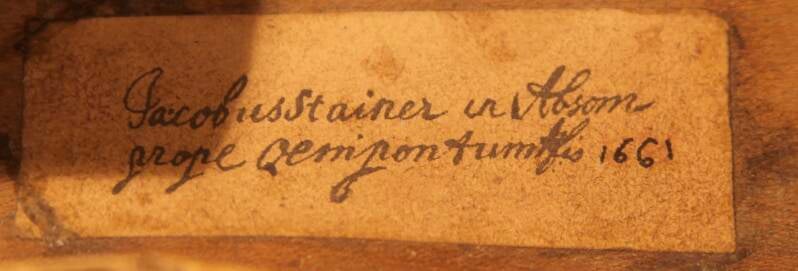 Jacobus Stainer in Absom
prope Oenipontum 1661